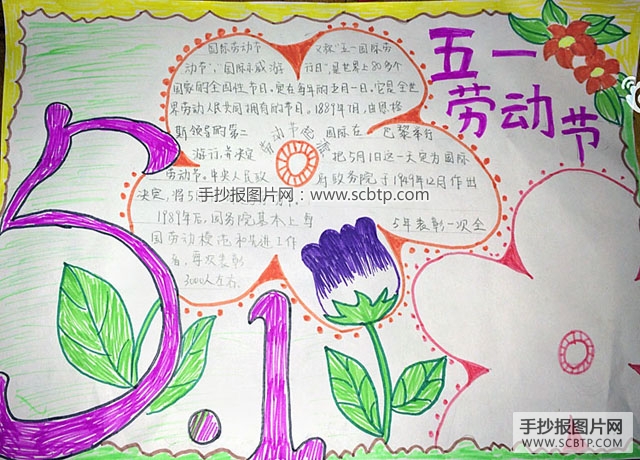 五一
劳动节
国际劳动节 又称"五一国际劳
动节","国际示威游 行日",是世界上80多个
国家的全国性节日,定在每年的五月一日,它是全世
界劳动人民共同拥有的节日,1889年7月,由恩格
斯领导的第二 国际在 巴黎举行
劳动节起源
游行,并决定 把5月1日这一天定为国际
劳动节,中央人民政 府政务院于1949年12月作出
决定,将5
手抄报图片网:www.scbtp.com
1989年后,国务院基本上每 5年表彰一次全
国劳动模范和先进工作
者,每次表彰
3000人左右.
5.1
手抄报图片网
WWW.SCBTP.COM